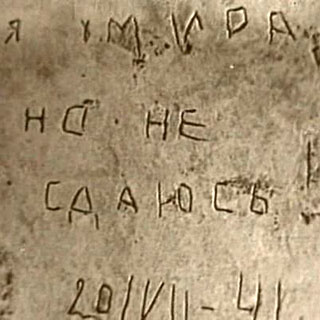 я умира
но не
сдаюсь
20/VII-41